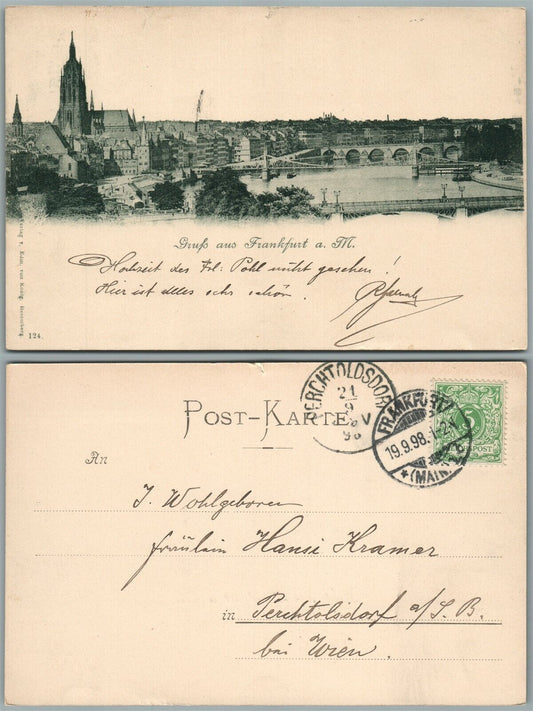 Gruß aus Frankfurt a. M.
Hochzeit des Frl: Pohl nicht gesehen!
Hier ist alles sehr schön.
124.
PERCHTOLDSDORF
21
9
98
POST-KARTE
FRANKFURT
19.9.98.
(MAIN)
5
An
I. Wohlgeboren
Fräulein Hansi Kramer
in Perchtolsdorf a/S. B.
bei Wien.